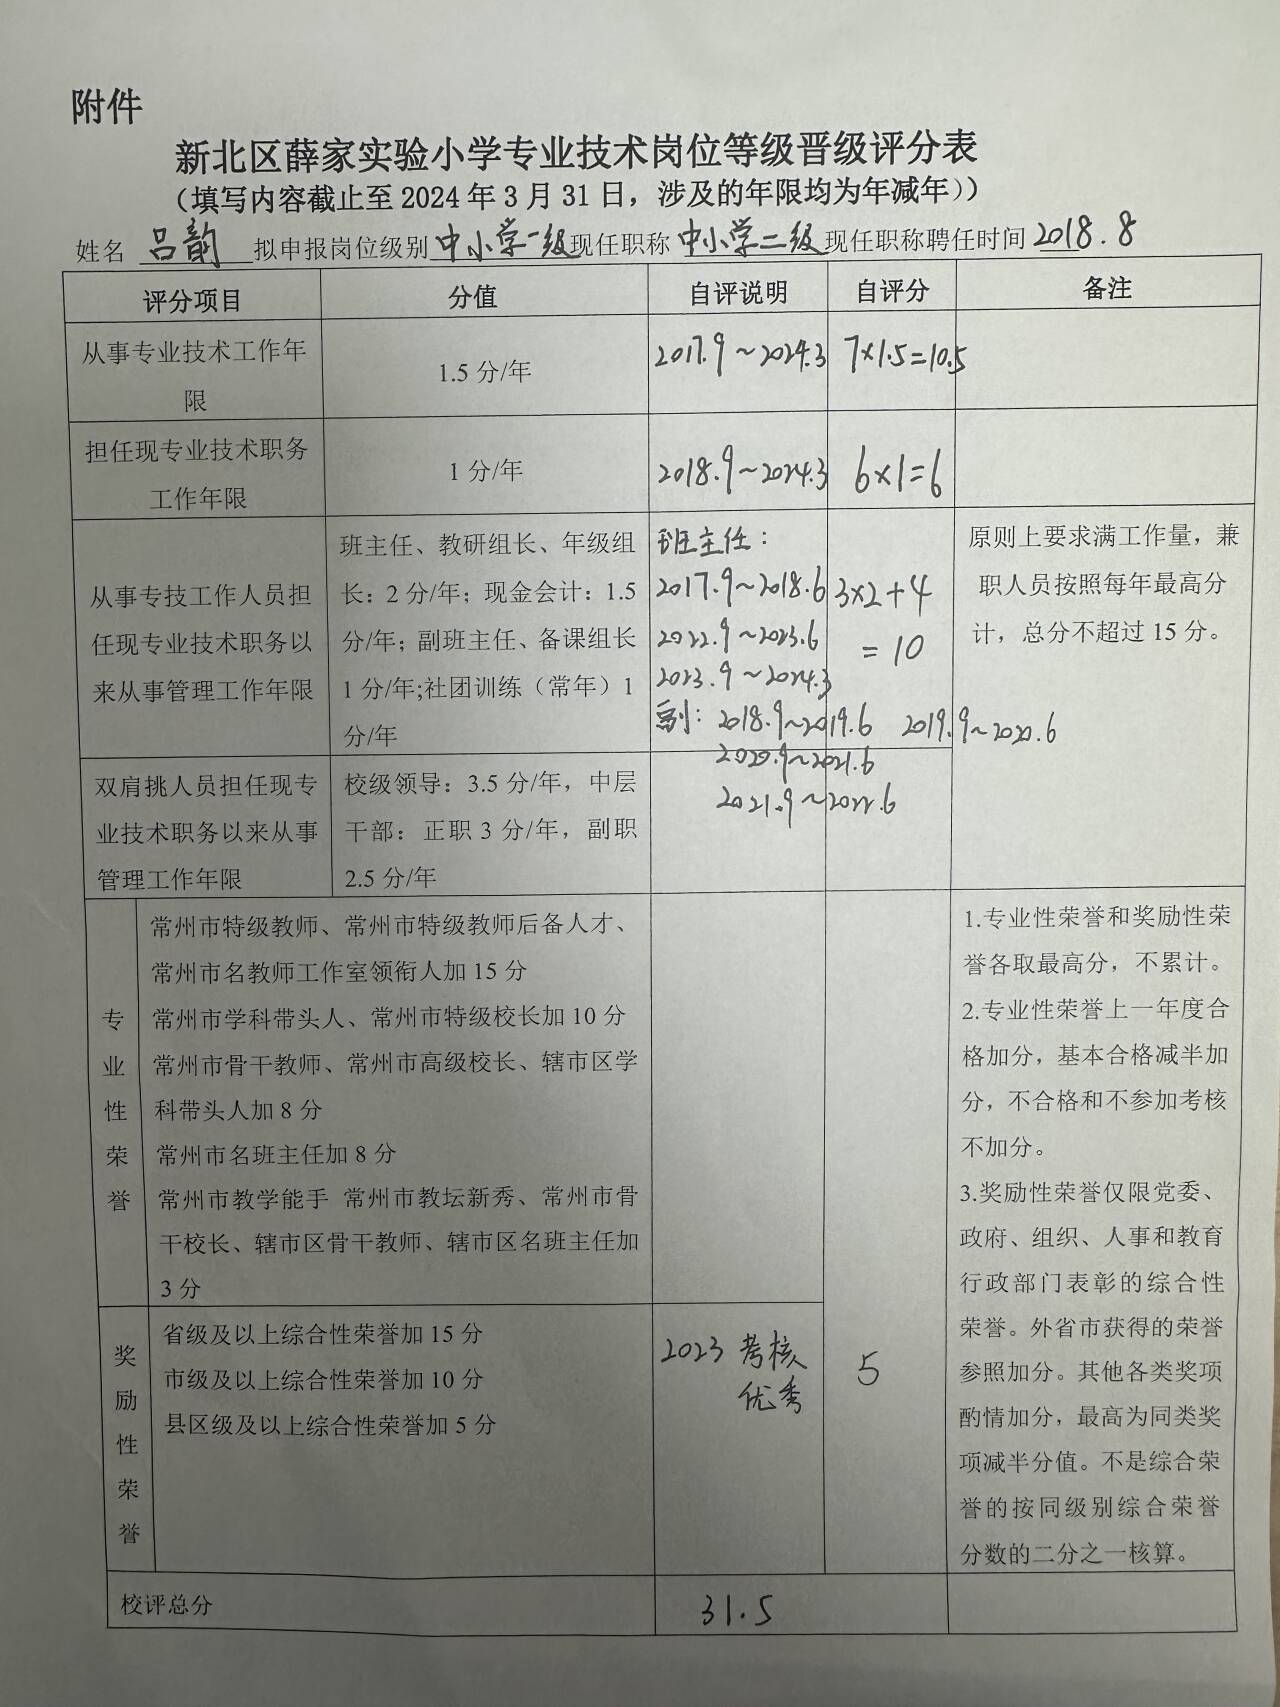 附件
新北区薛家实验小学专业技术岗位等级晋级评分表
（填写内容截止至 2024 年 3 月 31 日，涉及的年限均为年减年））
姓名 吕韵 拟申报岗位级别 中小学一级 现任职称 中小学二级 现任职称聘任时间 2018.8
评分项目 分值 自评说明 自评分 备注
从事专业技术工作年
限
1.5 分/年
2017.9～2024.3
7×1.5=10.5
担任现专业技术职务
工作年限
1 分/年
2018.9～2024.3
6×1=6
从事专技工作人员担
任现专业技术职务以
来从事管理工作年限
班主任、教研组长、年级组
长：2 分/年；现金会计：1.5
分/年；副班主任、备课组长
1 分/年;社团训练（常年）1
分/年
班主任：
2017.9～2018.6
2022.9～2023.6
2023.9～2024.3
副：2018.9～2019.6 2019.9～2020.6
2020.9～2021.6
2021.9～2022.6
3×2+4
=10
原则上要求满工作量，兼
职人员按照每年最高分
计，总分不超过 15 分。
双肩挑人员担任现专
业技术职务以来从事
管理工作年限
校级领导：3.5 分/年，中层
干部：正职 3 分/年，副职
2.5 分/年
专
业
性
荣
誉
常州市特级教师、常州市特级教师后备人才、
常州市名教师工作室领衔人加 15 分
常州市学科带头人、常州市特级校长加 10 分
常州市骨干教师、常州市高级校长、辖市区学
科带头人加 8 分
常州市名班主任加 8 分
常州市教学能手 常州市教坛新秀、常州市骨
干校长、辖市区骨干教师、辖市区名班主任加
3 分
1.专业性荣誉和奖励性荣
誉各取最高分，不累计。
2.专业性荣誉上一年度合
格加分，基本合格减半加
分，不合格和不参加考核
不加分。
3.奖励性荣誉仅限党委、
政府、组织、人事和教育
行政部门表彰的综合性
荣誉。外省市获得的荣誉
参照加分。其他各类奖项
酌情加分，最高为同类奖
项减半分值。不是综合荣
誉的按同级别综合荣誉
分数的二分之一核算。
奖
励
性
荣
誉
省级及以上综合性荣誉加 15 分
市级及以上综合性荣誉加 10 分
县区级及以上综合性荣誉加 5 分
2023 考核
优秀
5
校评总分
31.5